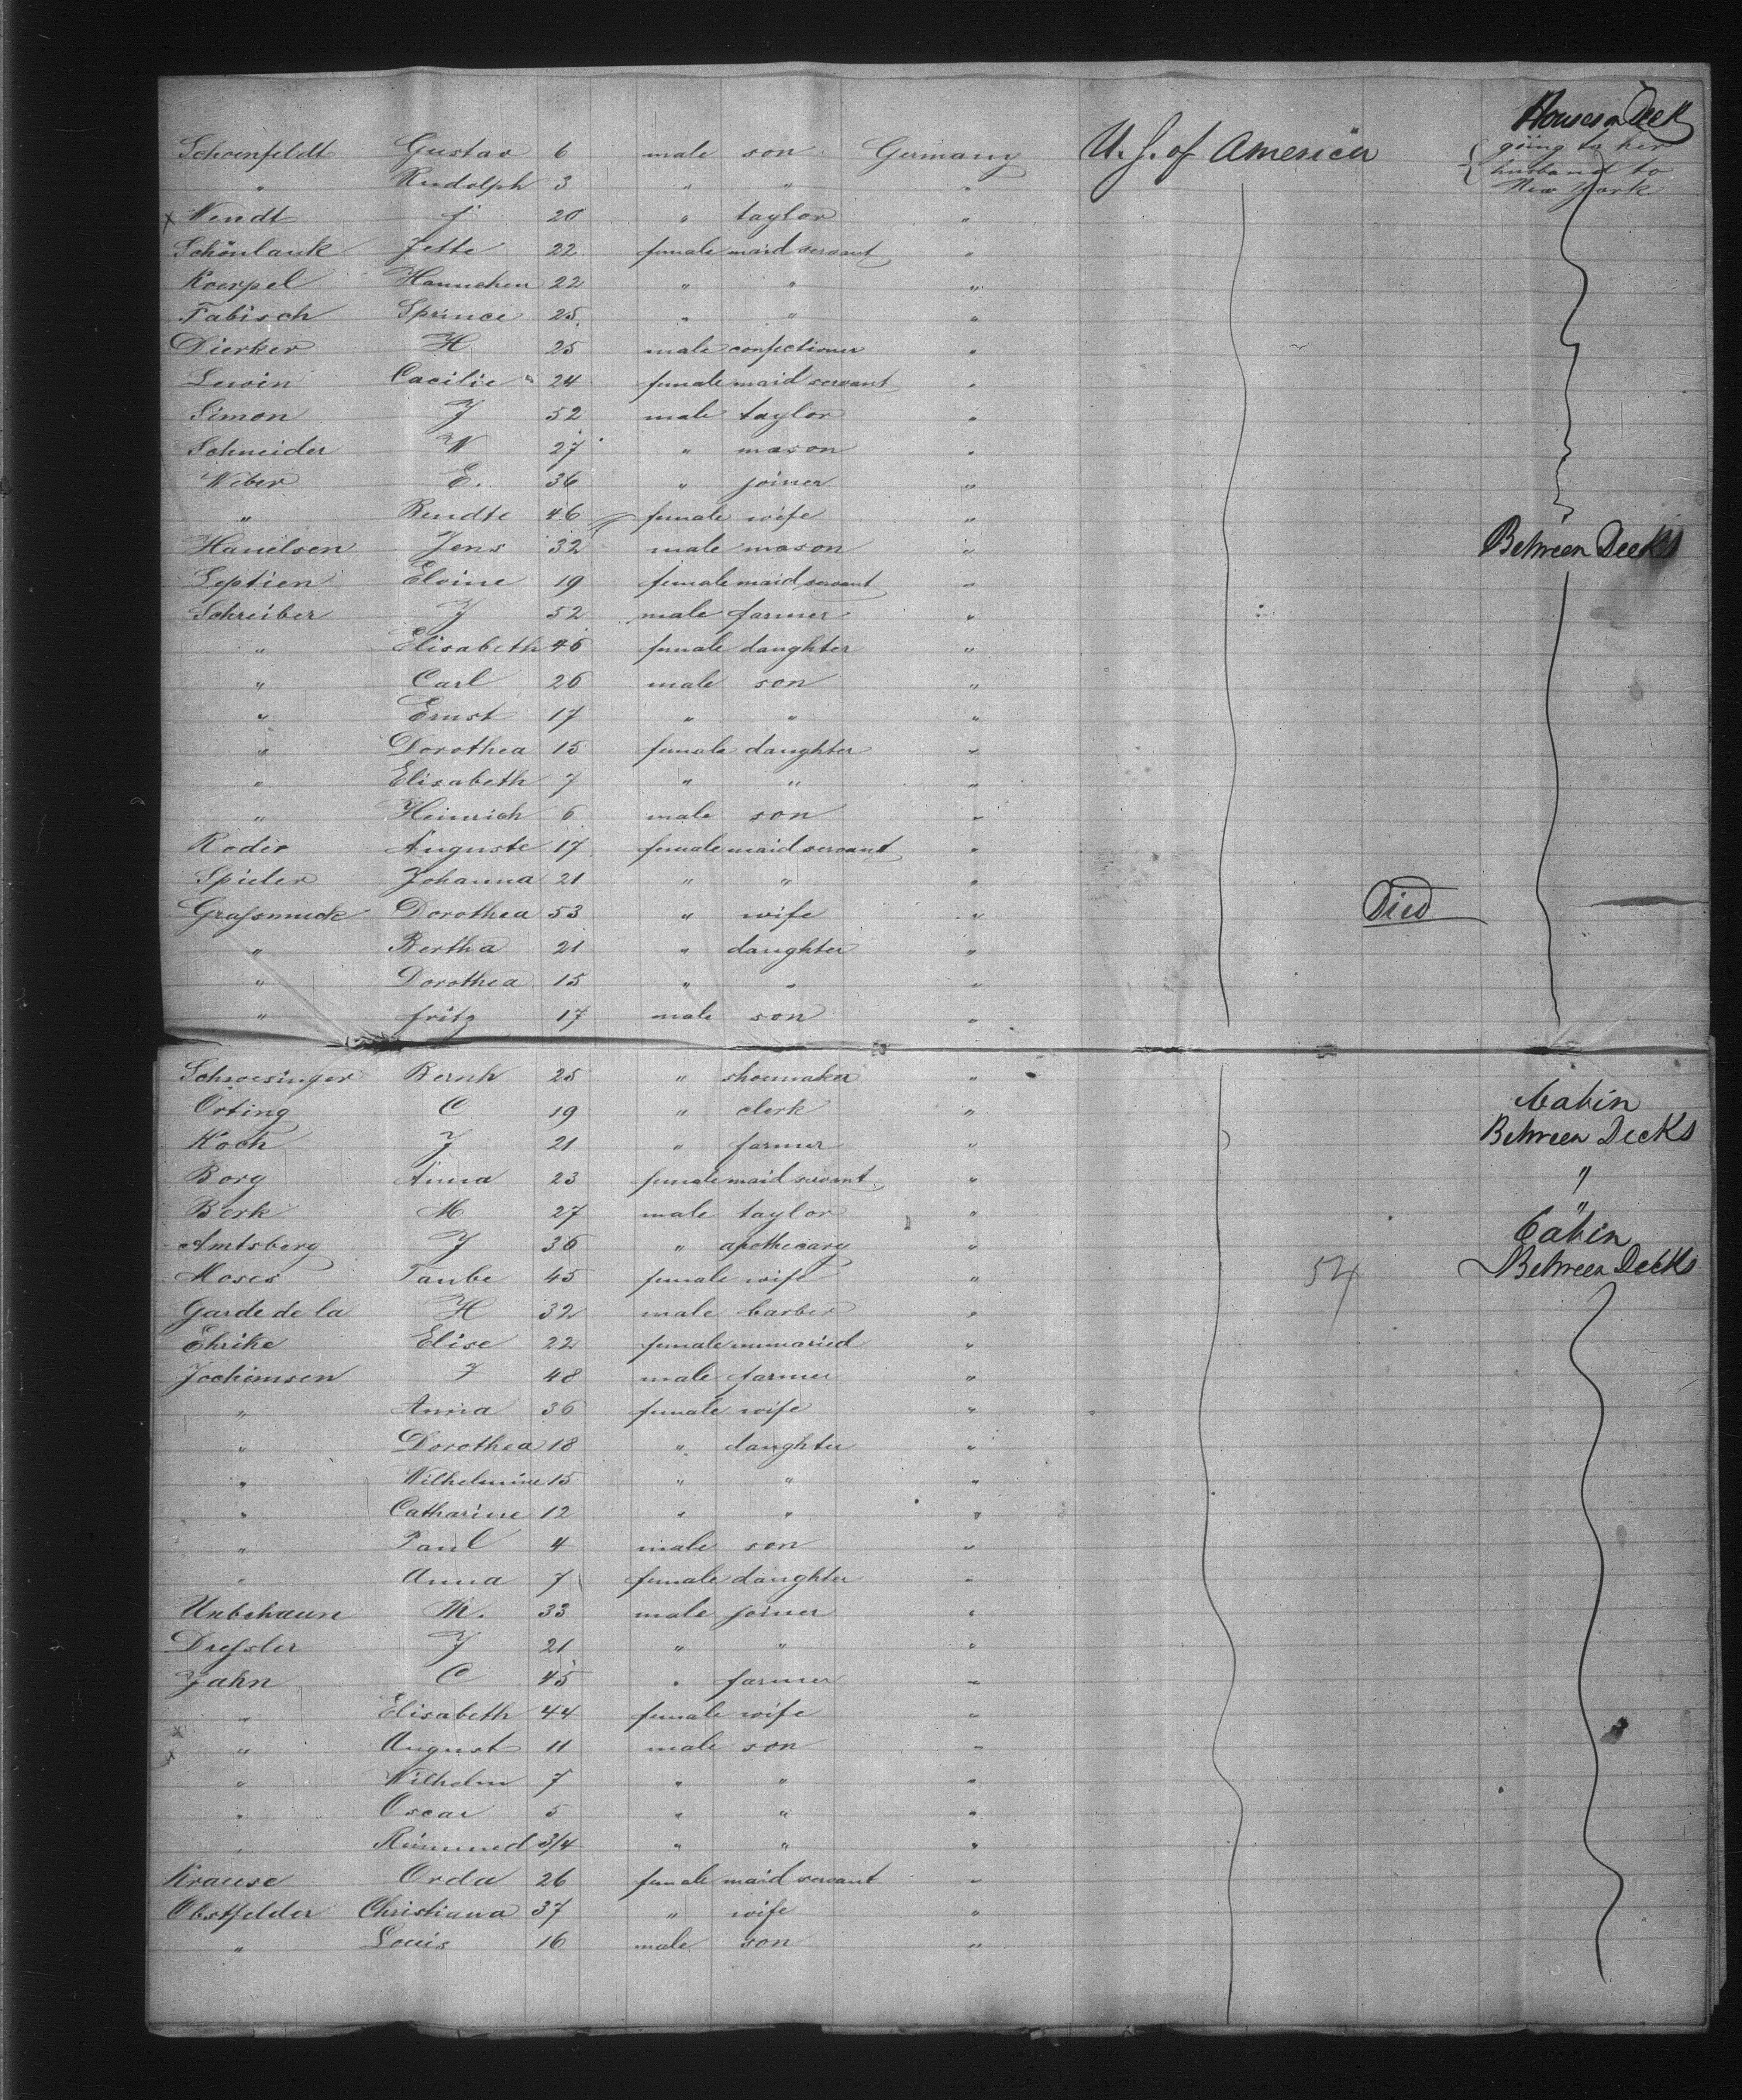 Houses on Deck
Schoenfeldt Gustav 6 male son Germany U.S. of America going to her
husband to
" Rudolph 3 " " " New York
x Wendt J 20 " taylor "
Schönlank Jette 22 female maid servant "
Koerpel Hannchen 22 " " "
Fabisch Sprince 25 " " "
Dierker H 25 male confectioner "
Lewin Cacilie 24 female maid servant "
Simon J 52 male taylor "
Schneider W 27 " mason "
Weber E. 36 " joiner "
" Bendte 46 female wife "
Hanelsen Jens 32 male mason " Between Decks
Septien Elvine 19 female maid servant "
Schreiber J 52 male farmer "
" Elisabeth 46 female daughter "
" Carl 26 male son "
" Ernst 17 " " "
" Dorothea 15 female daughter "
" Elisabeth 7 " " "
" Heinrich 6 male son "
Roder Auguste 17 female maid servant "
Spieler Johanna 21 " " "
Graſsmuck Dorothea 53 " wife " Died
" Bertha 21 " daughter "
" Dorothea 15 " " "
" Fritz 17 male son "
Schwesinger Bernh 25 " shoemaker "
Orting C 19 " clerk " Cabin
Koch J 21 " farmer " Between Decks
Borg Anna 23 female maid servant " "
Berk M 27 male taylor " "
Amtsberg J 36 " apothecary " Cabin
Moses Taube 45 female wife " 54 Between Decks
Garde de la H 32 male barber "
Ehrike Elise 22 female unmaried "
Jochimsen J 48 male farmer "
" Anna 36 female wife "
" Dorothea 18 " daughter "
" Wilhelmine 15 " " "
" Catharine 12 " " "
" Paul 4 male son "
" Anna 7 female daughter "
Unbehaun M. 33 male joiner "
Dreſsler J 21 " " "
Jahn C 45 " farmer "
" Elisabeth 44 female wife "
x " August 11 male son "
" Wilhelm 7 " " "
" Oscar 5 " " "
" 3/4 " " "
Krause Orda 26 female maid servant "
Obstfelder Christiana 37 " wife "
" Louis 16 male son "